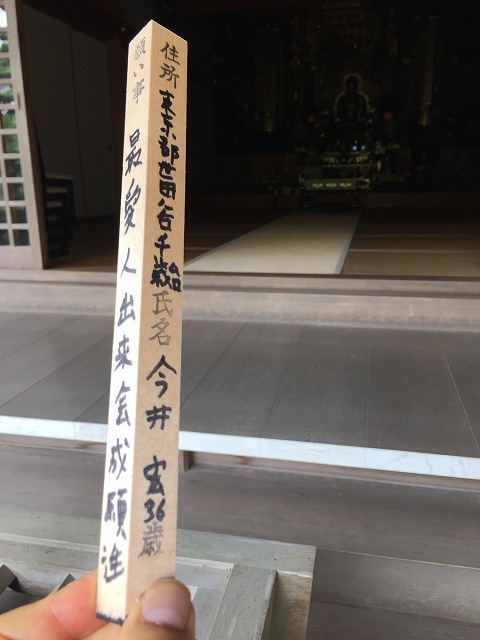 願い事 最愛人出来会成願達
住所 東京都世田谷千歳台 氏名 今井 宏 36歳